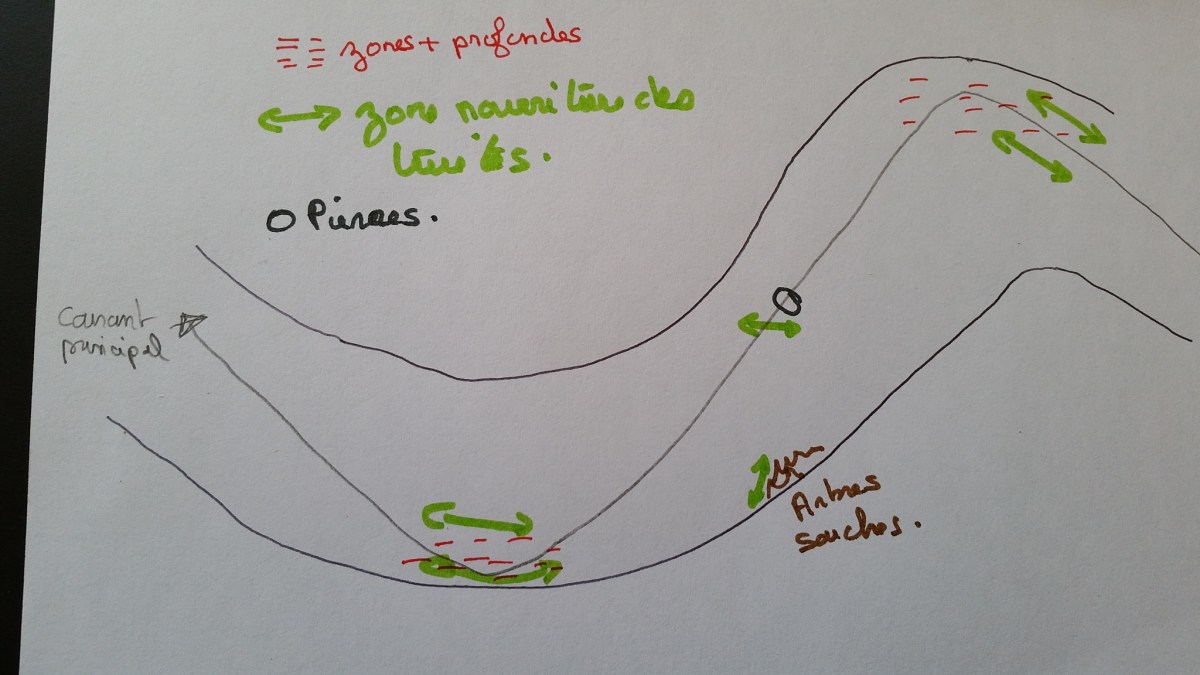 zones + profondes
zone nourritière des
truites.
Pierres.
Courant
principal
Arbres
souches.